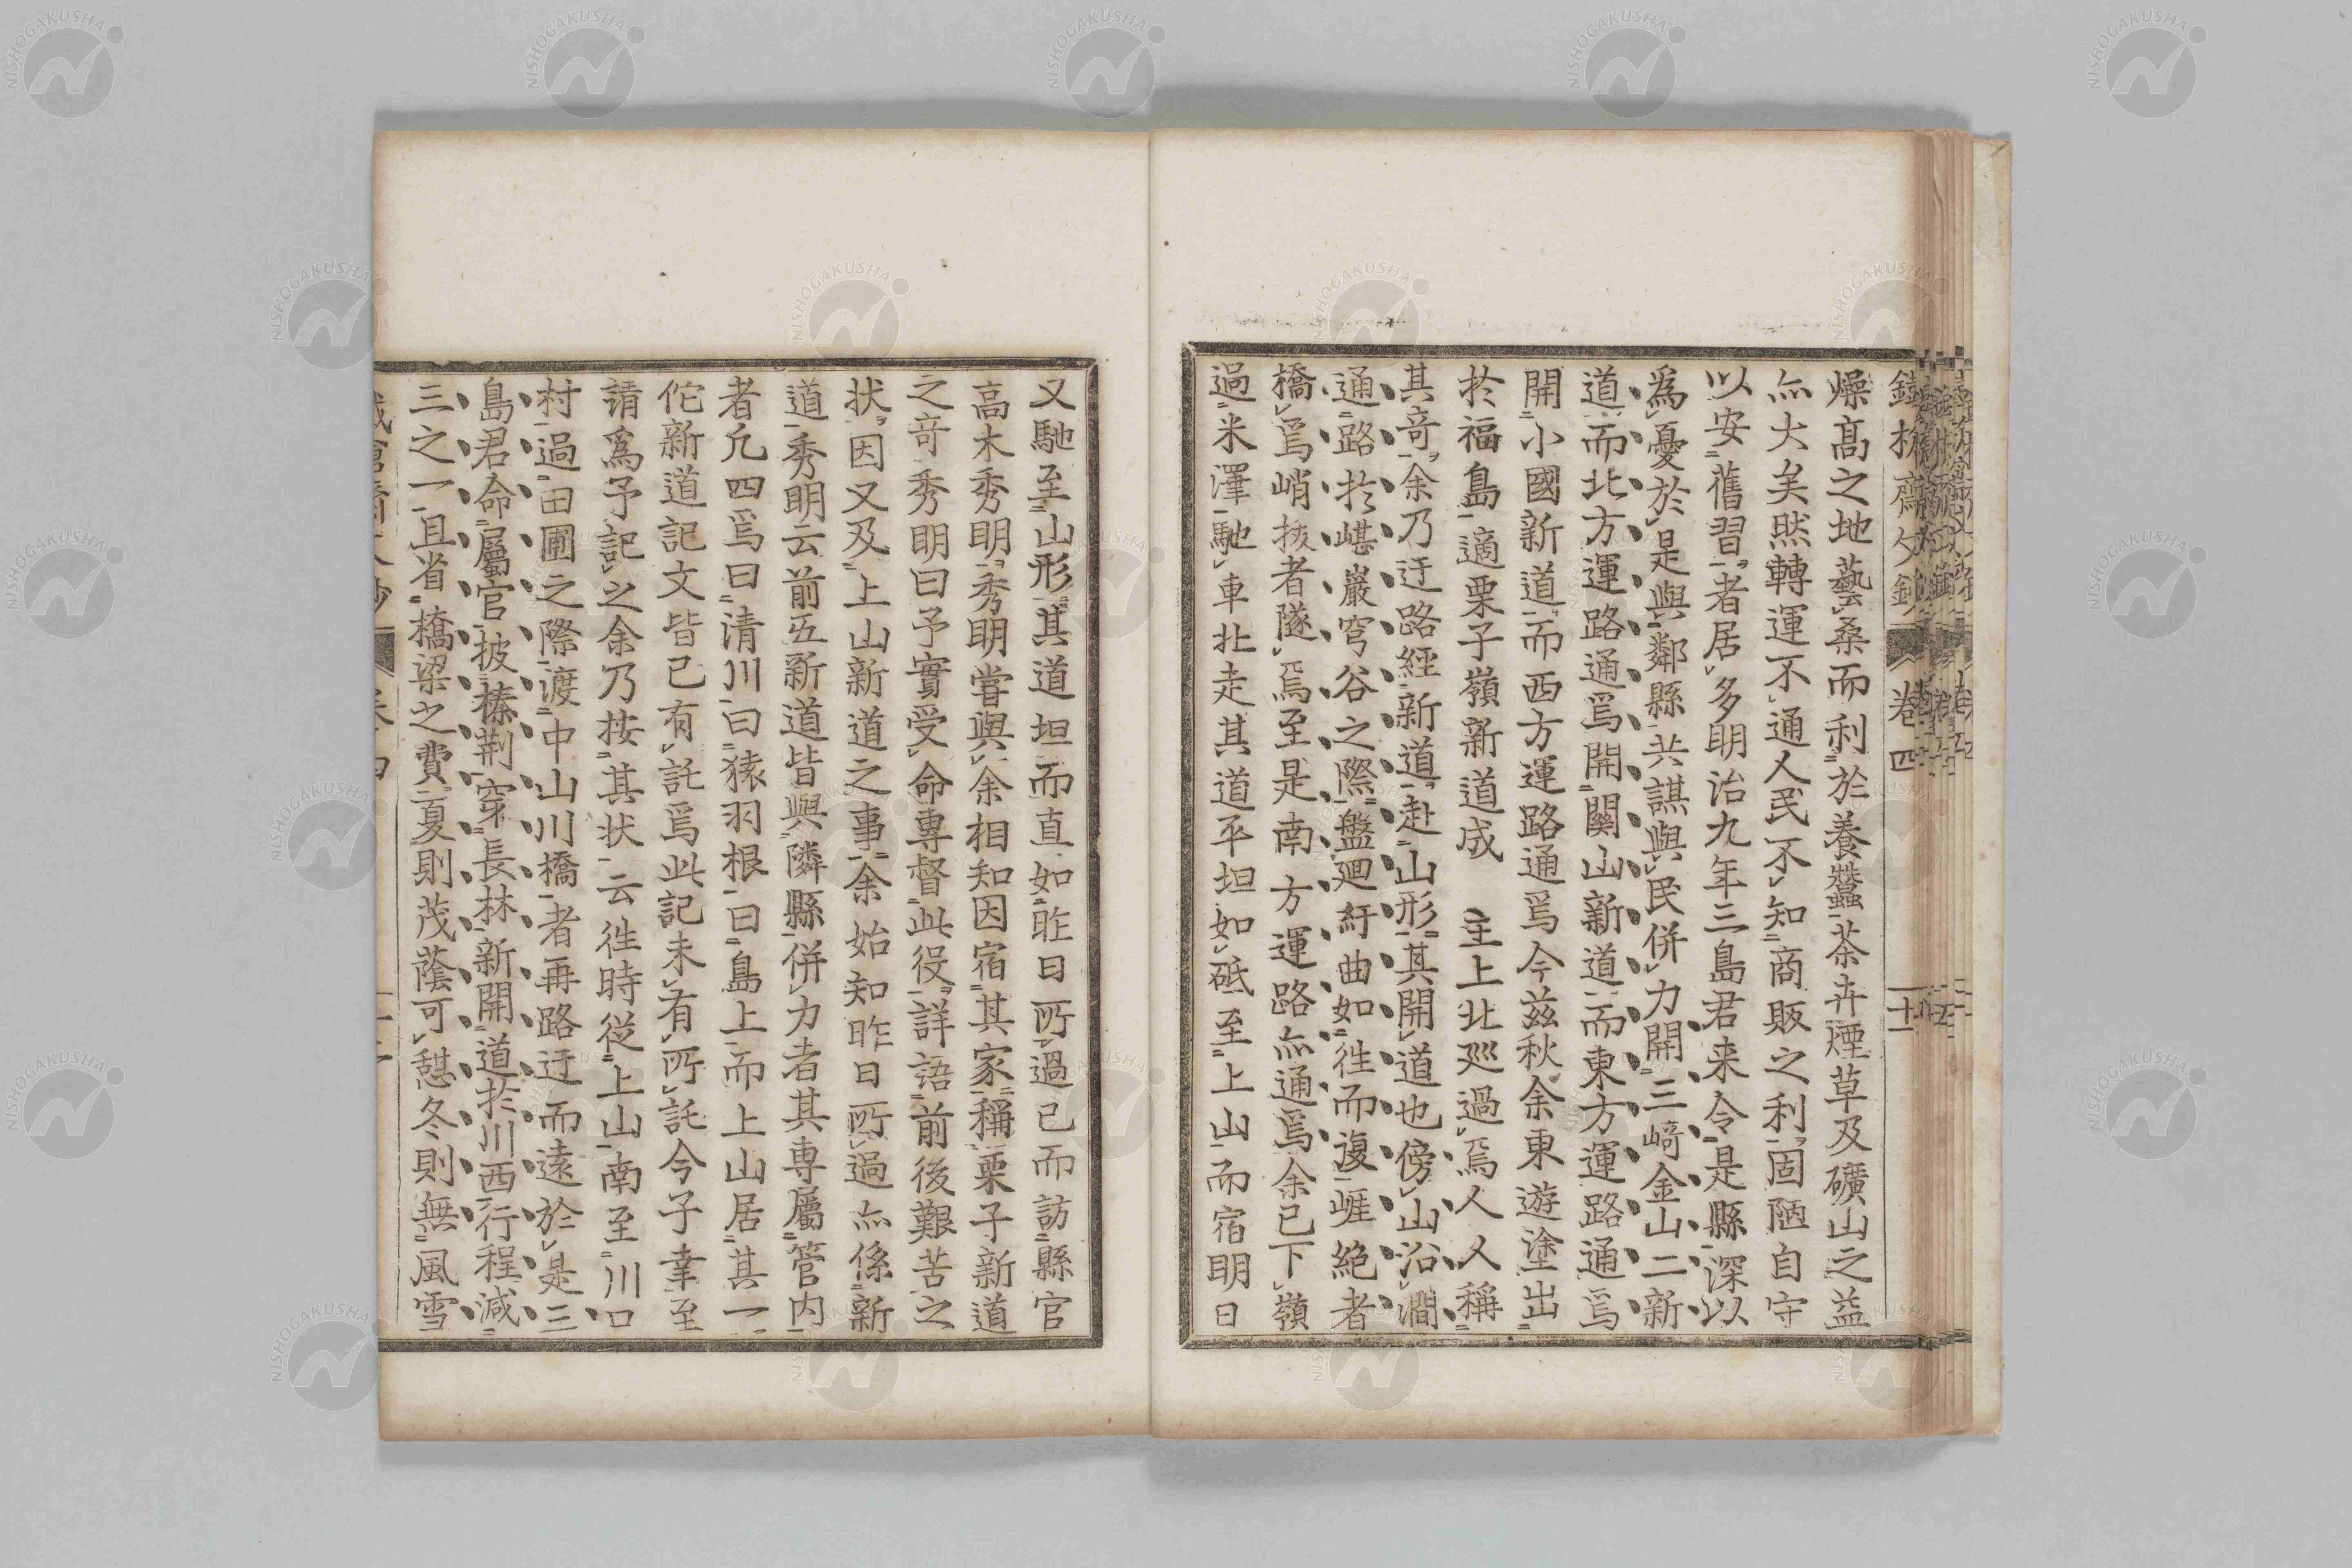 燥髙之地藝桑而利於養蠶茶卉煙草及礦山之益
亦大矣然轉運不通人民不知商販之利固陋自守
以安舊習者居多明治九年三島君来令是縣深以
為憂於是與鄰縣共謀與民併力開三﨑金山二新
道而北方運路通焉開關山新道而東方運路通焉
開小國新道而西方運路通焉今茲秋余東遊塗出
於福島適栗子嶺新道成 主上北巡過焉人人稱
其奇余乃迂路經新道赴山形其開道也傍山沿澗
通路於嵁巖穹谷之際盤廻紆曲如徃而復崕絶者
橋焉峭拔者隧焉至是南方運路亦通焉余已下嶺
過米澤馳車北走其道平坦如砥至上山而宿明日
又馳至山形其道坦而直如昨日所過已而訪縣官
高木秀明秀明嘗與余相知因宿其家稱栗子新道
之奇秀明曰予實受命專督此役詳語前後艱苦之
状因又及上山新道之事余始知昨日所過亦係新
道秀明云前五新道皆與隣縣併力者其専屬管内
者凢四焉曰清川曰猿羽根曰島上而上山居其一
佗新道記文皆已有託焉此記未有所託今子幸至
請爲予記之余乃按其状云徃時從上山南至川口
村過田圃之際渡中山川橋者再路迂而遠於是三
島君命屬官披榛荆穿長林新開道於川西行程減
三之一且省橋梁之費夏則茂蔭可憇冬則無風雪
卷四
十一